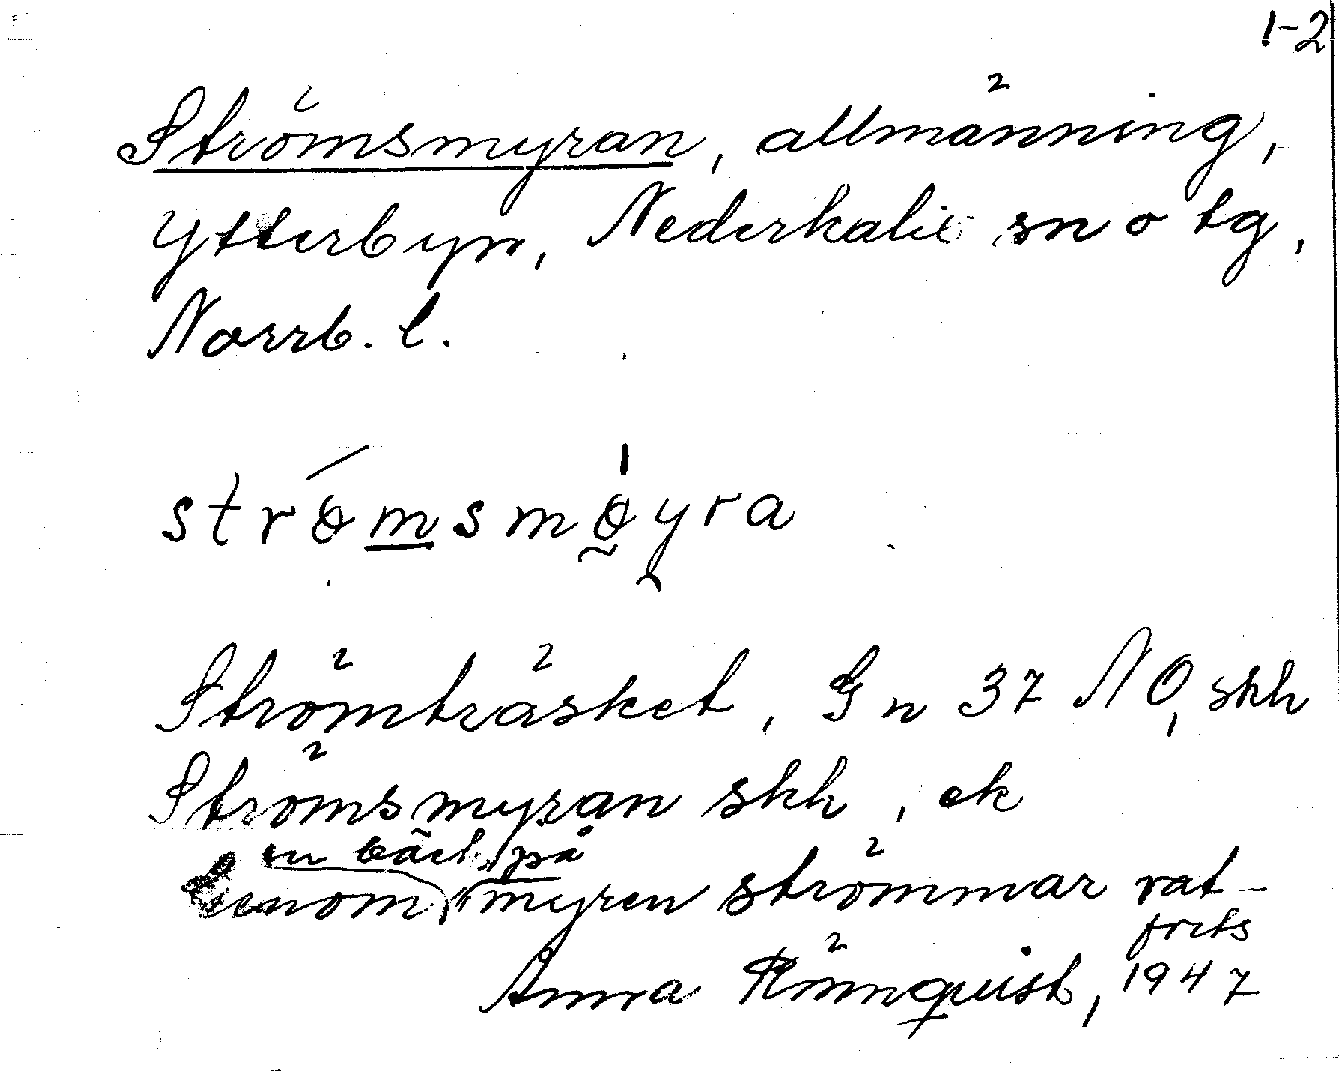 1-2
Strömsmyran, allmänning,
Ytterbyn, Nederkalix sn o tg,
Norrb. l.
strømsmøyra
Strömträsket, Gn 37 NO, skh
Strömsmyran skh, ek
en bäck på
Genom myren strömmar vat-
frets
Anna Rönnquist, 1947